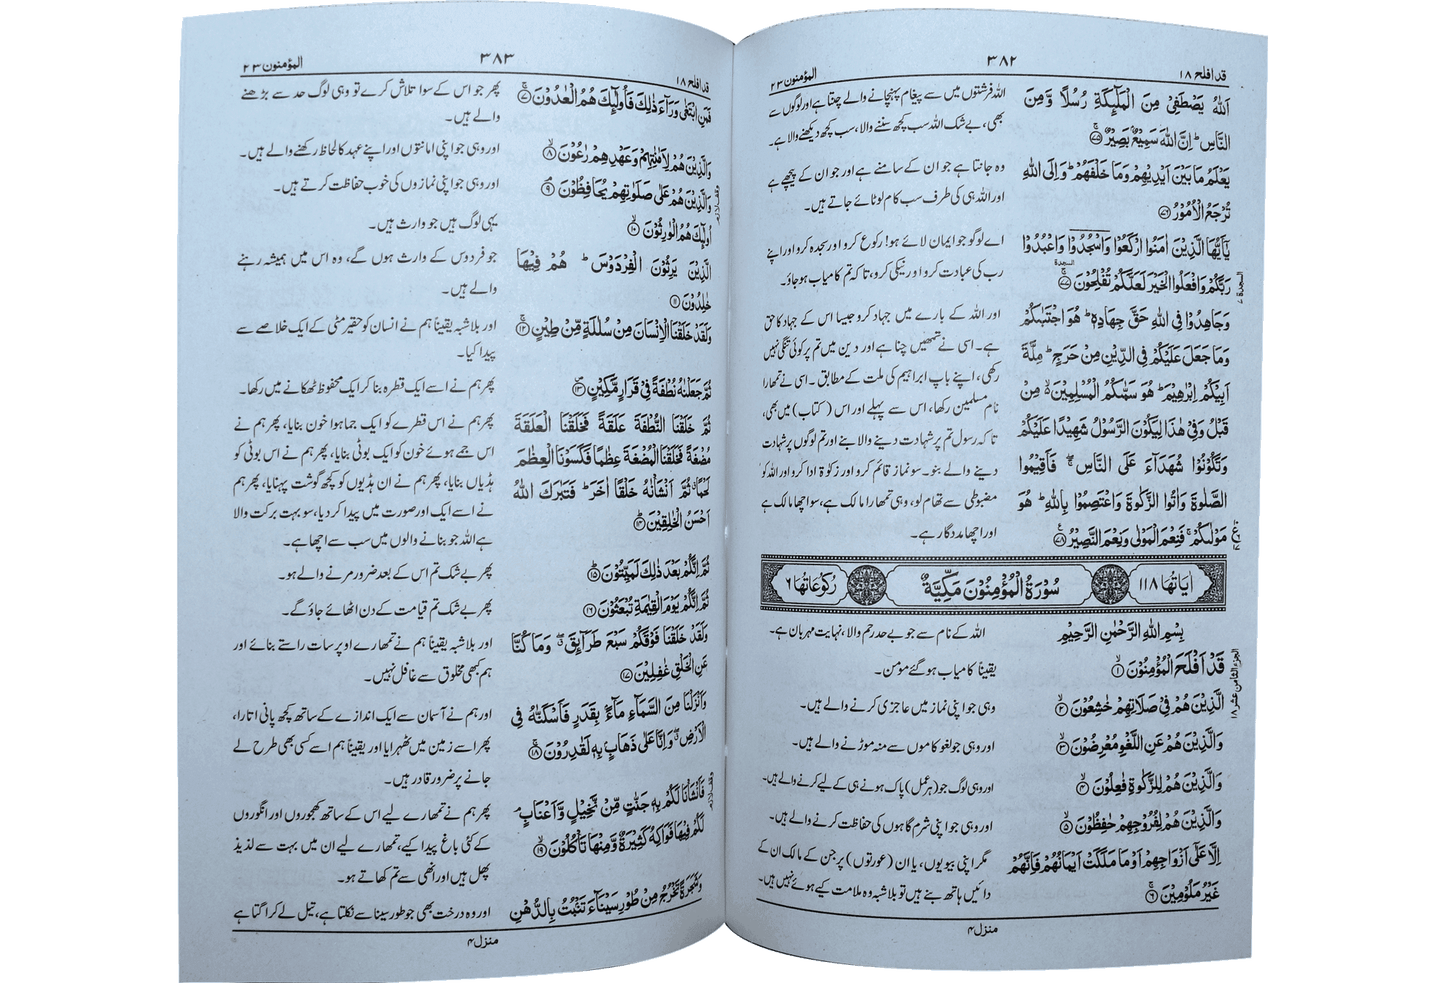 قد افلح ۱۸
۳۸۲
المؤمنون ۲۳
اَللّٰهُ يَصْطَفِيْ مِنَ الْمَلٰٓئِكَةِ رُسُلًا وَّمِنَ
النَّاسِ ؕ اِنَّ اللّٰهَ سَمِيْعٌۢ بَصِيْرٌ ۚ‏﴿۷۵﴾
يَعْلَمُ مَا بَيْنَ اَيْدِيْهِمْ وَمَا خَلْفَهُمْ ؕ وَاِلَى اللّٰهِ
تُرْجَعُ الْاُمُوْرُ ﴿۷۶﴾
يٰٓاَيُّهَا الَّذِيْنَ اٰمَنُوا ارْكَعُوْا وَاسْجُدُوْا وَاعْبُدُوْا
رَبَّكُمْ وَافْعَلُوا الْخَيْرَ لَعَلَّكُمْ تُفْلِحُوْنَ ۚ ﴿۷۷﴾
وَجَاهِدُوْا فِي اللّٰهِ حَقَّ جِهَادِهٖ ؕ هُوَ اجْتَبٰىكُمْ
وَمَا جَعَلَ عَلَيْكُمْ فِي الدِّيْنِ مِنْ حَرَجٍ ؕ مِلَّةَ
اَبِيْكُمْ اِبْرٰهِيْمَ ؕ هُوَ سَمّٰىكُمُ الْمُسْلِمِيْنَ ۙ مِنْ
قَبْلُ وَفِيْ هٰذَا لِيَكُوْنَ الرَّسُوْلُ شَهِيْدًا عَلَيْكُمْ
وَتَكُوْنُوْا شُهَدَآءَ عَلَى النَّاسِ ۖ فَاَقِيْمُوا
الصَّلٰوةَ وَاٰتُوا الزَّكٰوةَ وَاعْتَصِمُوْا بِاللّٰهِ ؕ هُوَ
مَوْلٰىكُمْ ۚ فَنِعْمَ الْمَوْلٰى وَنِعْمَ النَّصِيْرُ ﴿۷۸﴾
اللہ فرشتوں میں سے پیغام پہنچانے والے چنتا ہے اور لوگوں سے
بھی، بے شک اللہ سب کچھ سننے والا، سب کچھ دیکھنے والا ہے۔
وہ جانتا ہے جو ان کے سامنے ہے اور جو ان کے پیچھے ہے
اور اللہ ہی کی طرف سب کام لوٹائے جاتے ہیں۔
اے لوگو جو ایمان لائے ہو! رکوع کرو اور سجدہ کرو اور اپنے
رب کی عبادت کرو اور نیکی کرو، تاکہ تم کامیاب ہو جاؤ۔
اور اللہ کے بارے میں جہاد کرو جیسا اس کے جہاد کا حق
ہے۔ اسی نے تمھیں چنا ہے اور دین میں تم پر کوئی تنگی نہیں
رکھی، اپنے باپ ابراہیم کی ملت کے مطابق۔ اسی نے تمھارا
نام مسلمین رکھا، اس سے پہلے اور اس (کتاب) میں بھی،
تاکہ رسول تم پر شہادت دینے والا بنے اور تم لوگوں پر شہادت
دینے والے بنو۔ سو نماز قائم کرو اور زکوٰۃ ادا کرو اور اللہ کو
مضبوطی سے تھام لو، وہی تمھارا مالک ہے، سو اچھا مالک ہے
اور اچھا مددگار ہے۔
السجدة
السجدة ۷
اٰيَاتُهَا ۱۱۸
سُوْرَةُ الْمُؤْمِنُوْنَ مَكِّيَّةٌ
رُكُوْعَاتُهَا ۶
بِسْمِ اللّٰهِ الرَّحْمٰنِ الرَّحِيْمِ
قَدْ اَفْلَحَ الْمُؤْمِنُوْنَ ۙ ﴿۱﴾
الَّذِيْنَ هُمْ فِيْ صَلَاتِهِمْ خٰشِعُوْنَ ۙ ﴿۲﴾
وَالَّذِيْنَ هُمْ عَنِ اللَّغْوِ مُعْرِضُوْنَ ۙ ﴿۳﴾
وَالَّذِيْنَ هُمْ لِلزَّكٰوةِ فٰعِلُوْنَ ۙ ﴿۴﴾
وَالَّذِيْنَ هُمْ لِفُرُوْجِهِمْ حٰفِظُوْنَ ۙ ﴿۵﴾
اِلَّا عَلٰٓى اَزْوَاجِهِمْ اَوْ مَا مَلَكَتْ اَيْمَانُهُمْ فَاِنَّهُمْ
غَيْرُ مَلُوْمِيْنَ ۚ ﴿۶﴾
اللہ کے نام سے جو بے حد رحم والا، نہایت مہربان ہے۔
یقیناً کامیاب ہو گئے مومن۔
وہی جو اپنی نماز میں عاجزی کرنے والے ہیں۔
اور وہی جو لغو کاموں سے منہ موڑنے والے ہیں۔
اور وہی لوگ جو (ہر عمل) پاک ہونے ہی کے لیے کرنے والے ہیں۔
اور وہی جو اپنی شرم گاہوں کی حفاظت کرنے والے ہیں۔
مگر اپنی بیویوں، یا ان (عورتوں) پر جن کے مالک ان کے
دائیں ہاتھ بنے ہیں تو بلاشبہ وہ ملامت کیے ہوئے نہیں ہیں۔
الجزء الثامن عشر ۱۸
منزل ۴
قد افلح ۱۸
۳۸۳
المؤمنون ۲۳
فَمَنِ ابْتَغٰى وَرَآءَ ذٰلِكَ فَاُولٰٓئِكَ هُمُ الْعٰدُوْنَ ۚ ﴿۷﴾
وَالَّذِيْنَ هُمْ لِاَمٰنٰتِهِمْ وَعَهْدِهِمْ رٰعُوْنَ ۙ ﴿۸﴾
وَالَّذِيْنَ هُمْ عَلٰى صَلَوٰتِهِمْ يُحَافِظُوْنَ ۘ ﴿۹﴾
اُولٰٓئِكَ هُمُ الْوٰرِثُوْنَ ۙ ﴿۱۰﴾
الَّذِيْنَ يَرِثُوْنَ الْفِرْدَوْسَ ؕ هُمْ فِيْهَا
خٰلِدُوْنَ ﴿۱۱﴾
وَلَقَدْ خَلَقْنَا الْاِنْسَانَ مِنْ سُلٰلَةٍ مِّنْ طِيْنٍ ۚ ﴿۱۲﴾
ثُمَّ جَعَلْنٰهُ نُطْفَةً فِيْ قَرَارٍ مَّكِيْنٍ ۪ ﴿۱۳﴾
ثُمَّ خَلَقْنَا النُّطْفَةَ عَلَقَةً فَخَلَقْنَا الْعَلَقَةَ
مُضْغَةً فَخَلَقْنَا الْمُضْغَةَ عِظٰمًا فَكَسَوْنَا الْعِظٰمَ
لَحْمًا ۗ ثُمَّ اَنْشَاْنٰهُ خَلْقًا اٰخَرَ ؕ فَتَبٰرَكَ اللّٰهُ
اَحْسَنُ الْخٰلِقِيْنَ ؕ ﴿۱۴﴾
ثُمَّ اِنَّكُمْ بَعْدَ ذٰلِكَ لَمَيِّتُوْنَ ؕ ﴿۱۵﴾
ثُمَّ اِنَّكُمْ يَوْمَ الْقِيٰمَةِ تُبْعَثُوْنَ ﴿۱۶﴾
وَلَقَدْ خَلَقْنَا فَوْقَكُمْ سَبْعَ طَرَآئِقَ ۖ وَمَا كُنَّا
عَنِ الْخَلْقِ غٰفِلِيْنَ ﴿۱۷﴾
وَاَنْزَلْنَا مِنَ السَّمَآءِ مَآءًۢ بِقَدَرٍ فَاَسْكَنّٰهُ فِي
الْاَرْضِ ۖ وَاِنَّا عَلٰى ذَهَابٍۢ بِهٖ لَقٰدِرُوْنَ ۚ ﴿۱۸﴾
فَاَنْشَاْنَا لَكُمْ بِهٖ جَنّٰتٍ مِّنْ نَّخِيْلٍ وَّاَعْنَابٍ ۘ
لَكُمْ فِيْهَا فَوَاكِهُ كَثِيْرَةٌ وَّمِنْهَا تَاْكُلُوْنَ ۙ ﴿۱۹﴾
وَشَجَرَةً تَخْرُجُ مِنْ طُوْرِ سَيْنَآءَ تَنْۢبُتُ بِالدُّهْنِ
پھر جو اس کے سوا تلاش کرے تو وہی لوگ حد سے بڑھنے
والے ہیں۔
اور وہی جو اپنی امانتوں اور اپنے عہد کا لحاظ رکھنے والے ہیں۔
اور وہی جو اپنی نمازوں کی خوب حفاظت کرتے ہیں۔
یہی لوگ ہیں جو وارث ہیں۔
جو فردوس کے وارث ہوں گے، وہ اس میں ہمیشہ رہنے
والے ہیں۔
اور بلاشبہ یقیناً ہم نے انسان کو حقیر مٹی کے ایک خلاصے سے
پیدا کیا۔
پھر ہم نے اسے ایک قطرہ بنا کر ایک محفوظ ٹھکانے میں رکھا۔
پھر ہم نے اس قطرے کو ایک جما ہوا خون بنایا، پھر ہم نے
اس جمے ہوئے خون کو ایک بوٹی بنایا، پھر ہم نے اس بوٹی کو
ہڈیاں بنایا، پھر ہم نے ان ہڈیوں کو کچھ گوشت پہنایا، پھر ہم
نے اسے ایک اور صورت میں پیدا کر دیا، سو بہت برکت والا
ہے اللہ جو بنانے والوں میں سب سے اچھا ہے۔
پھر بے شک تم اس کے بعد ضرور مرنے والے ہو۔
پھر بے شک تم قیامت کے دن اٹھائے جاؤ گے۔
اور بلاشبہ یقیناً ہم نے تمھارے اوپر سات راستے بنائے اور
ہم کبھی مخلوق سے غافل نہیں۔
اور ہم نے آسمان سے ایک اندازے کے ساتھ کچھ پانی اتارا،
پھر اسے زمین میں ٹھہرایا اور یقیناً ہم اسے کسی بھی طرح لے
جانے پر ضرور قادر ہیں۔
پھر ہم نے تمھارے لیے اس کے ساتھ کھجوروں اور انگوروں
کے کئی باغ پیدا کیے، تمھارے لیے ان میں بہت سے لذیذ
پھل ہیں اور انھی سے تم کھاتے ہو۔
اور وہ درخت بھی جو طور سینا سے نکلتا ہے، تیل لے کر اگتا ہے
منزل ۴